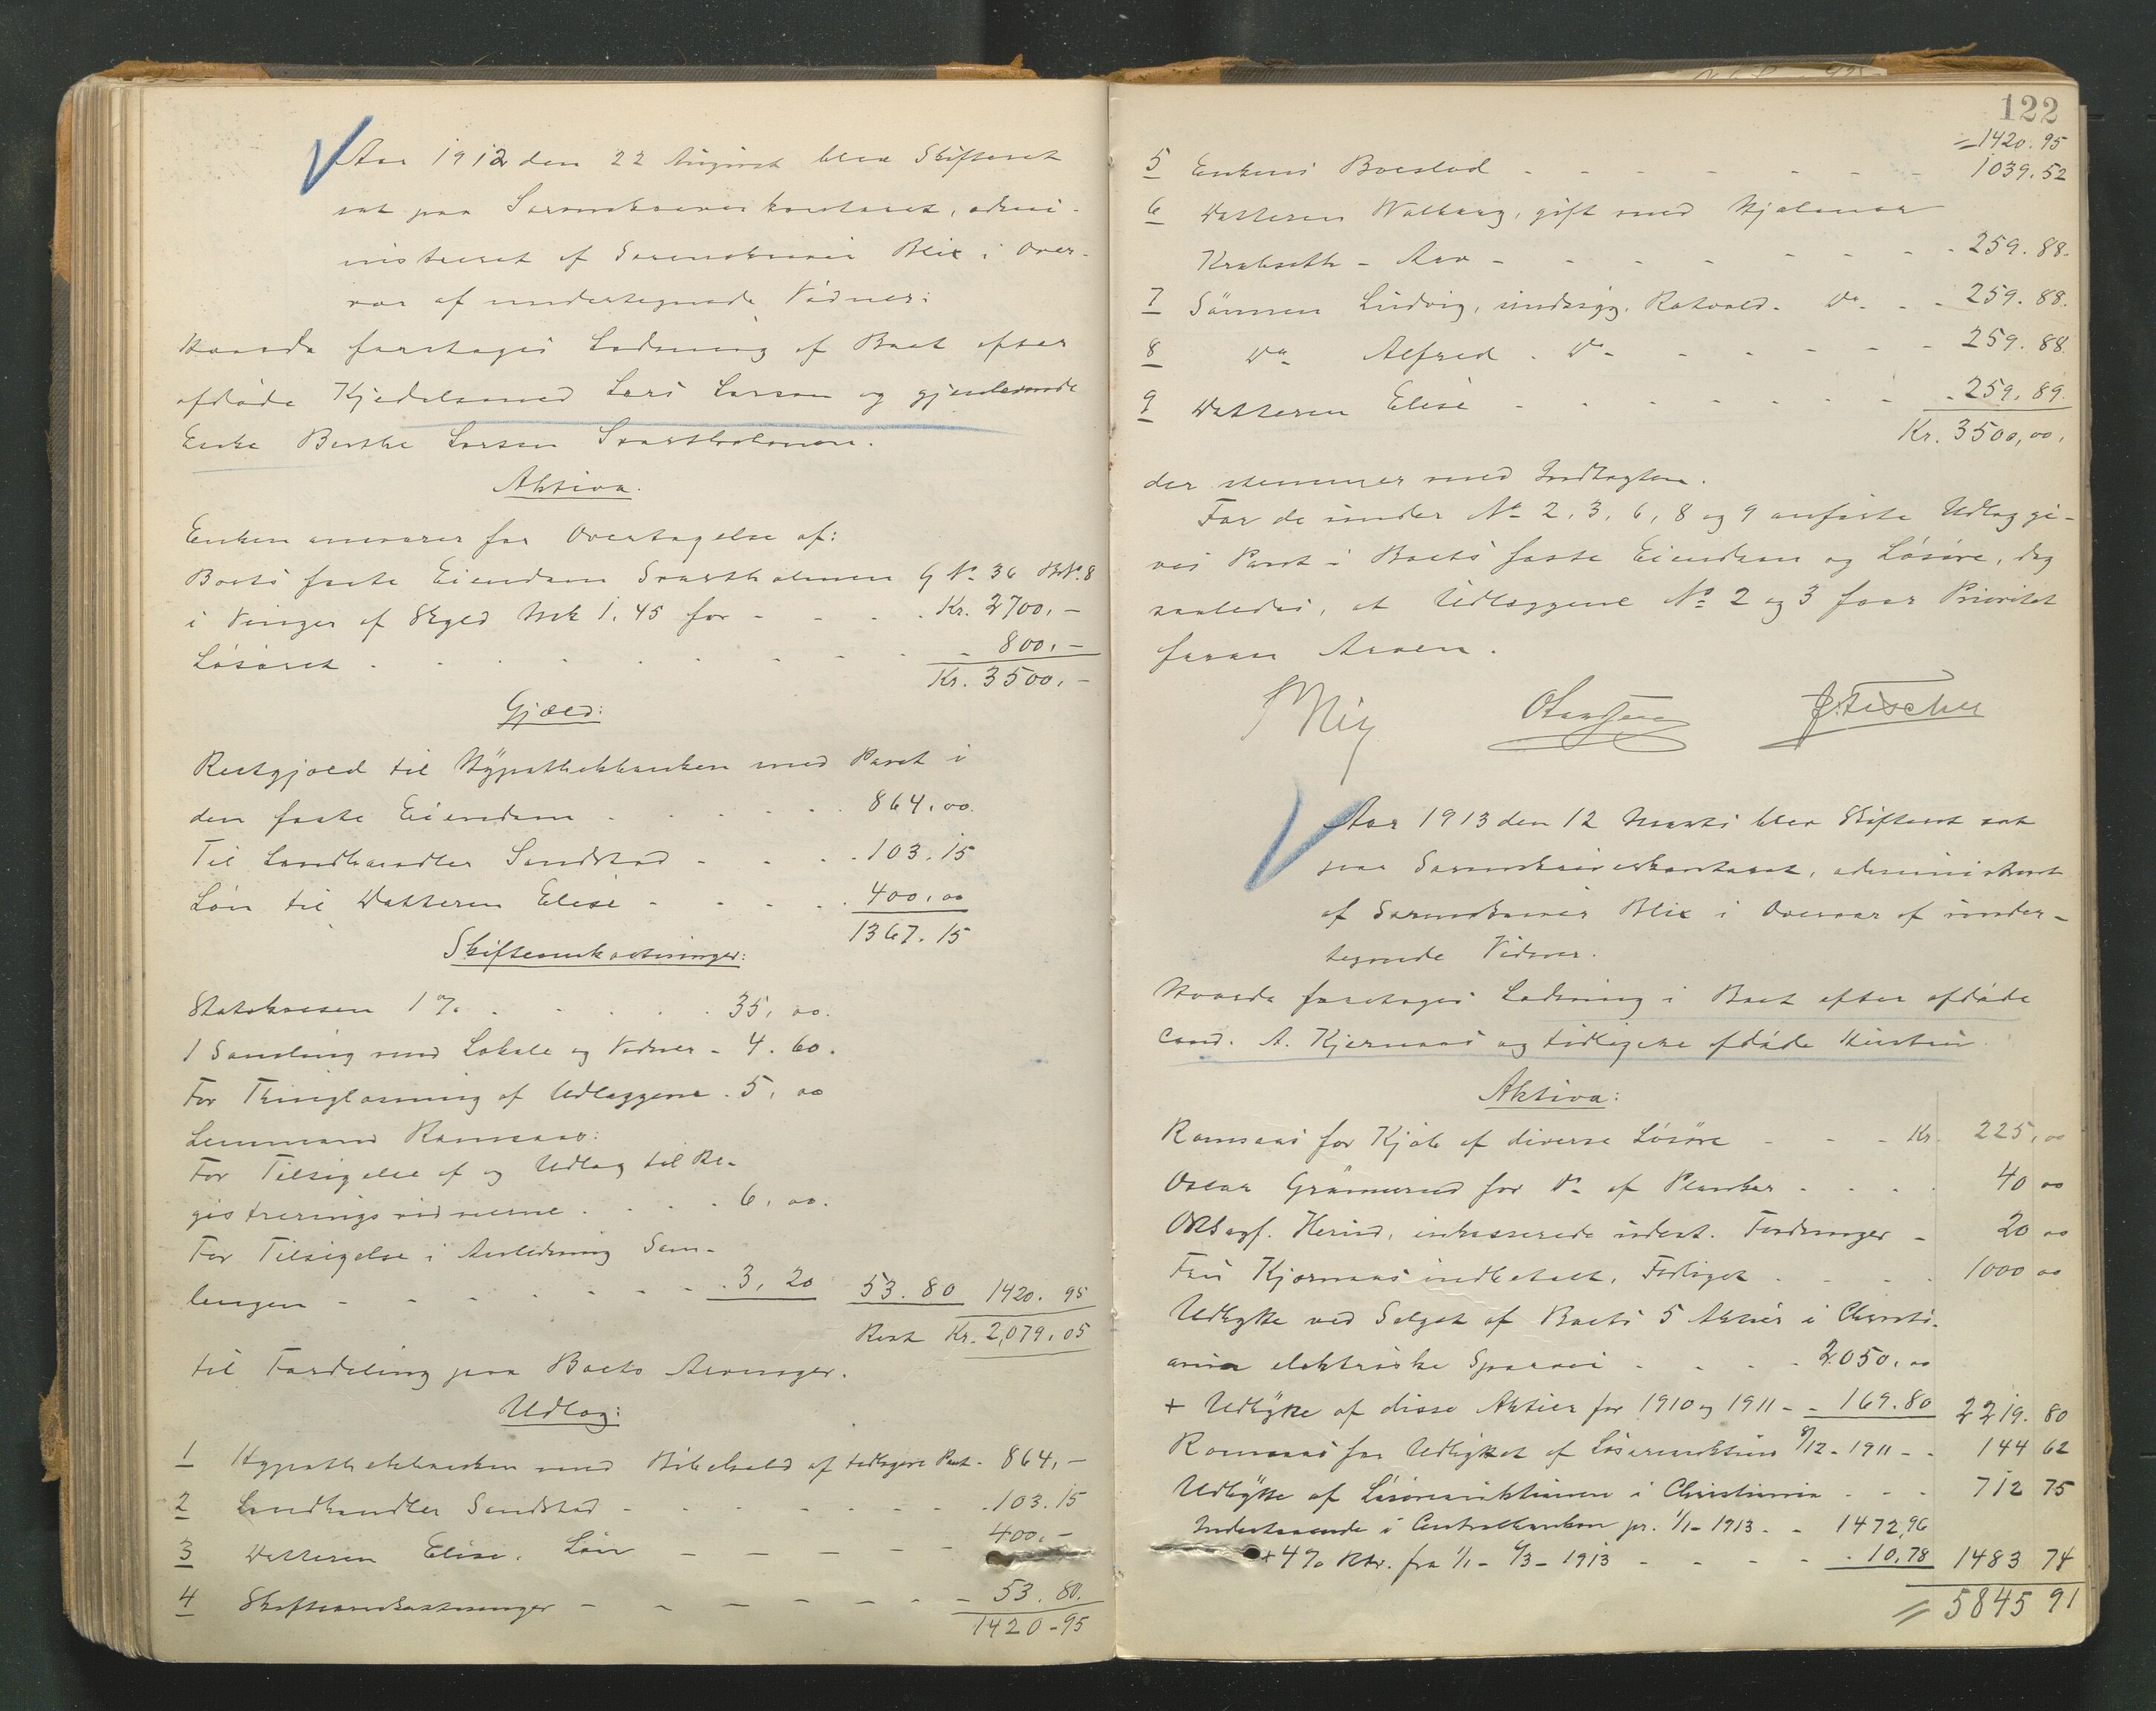 Aar 1912 den 22 August blev Skifteret
sat paa Sorenskriverkontoret, admi-
nistreret af Sorenskriver Blix i Over-
vær af undertegnede Vidner:
Hvorda foretoges Lodning af Boet efter
afdøde Kjedelsmed Lars Larsen og gjenlevende
Enke Berthe Larsen Svartholmen.
Aktiva.
Enken ansvarer for Overtagelse af:
Boets faste Eiendom Svartholmen G No 36 BNo. 8
i Vinger af Skyld Mrk 1.45 for - - - Kr. 2700,-
Løsøret - - - - - - - - 800,-
Kr. 3500,-
Gjæld:
Restgjæld til Hypothekbanken med Pant i
den faste Eiendom - - - - - 864,00.
Til Landhandler Sandstad - - - - 103.15
Løn til Datteren Elise - - - - 400,00
1367.15
Skifteomkostninger:
Statskassen 1 % - - - - - 35,00.
1 Samling med Lokale og Vidner - 4.60.
For Thinglæsning af Udlæggene - 5,00
Lensmand Ramsaas:
For Tilsigelse af og Udlæg til Re-
gistreringsvidnerne - - - - 6,00.
For Tilsigelse i Anledning Sam-
lingen - - - - - - - 3,20 53.80 1420.95
Rest Kr. 2,079.05
til Fordeling paa Boets Arvinger.
Udlæg:
1 Hypothekbanken med Bibehold af tidligere Pant - 864,-
2 Landhandler Sandstad - - - - - - - 103.15
3 Datteren Elise, Løn - - - - - - 400,-
4 Skifteomkostninger - - - - - - - 53.80.
1420-95
122
= 1420.95
5 Enkens Boeslod - - - - - - - 1039.52
6 Datteren Valborg, gift med Hjalmar
Krabseth - Arv - - - - - - - 259.88.
7 Sønnen Ludvig, sindssyg, Rotvold - Do - - 259.88.
8 Do Alfred - Do - - - - - 259.88.
9 Datteren Elise - - - - - - - 259.89.
Kr. 3500,00,
der stemmer med Indtægten.
For de under No 2, 3, 6, 8 og 9 anførte Udlæg gi-
ves Pant i Boets faste Eiendom og Løsøre, dog
saaledes, at Udlæggene No 2 og 3 faar Prioritet
foran Arven.
Blix
Aar 1913 den 12 Marts blev Skifteret sat
paa Sorenskriverkontoret, administreret
af Sorenskriver Blix i Overvær af under-
tegnede Vidner.
Hvorda foretoges Lodning i Boet efter afdøde
Cand. A. Kjernaas og tidligere afdøde Hustru.
Aktiva:
Ramsaas for Kjøb af diverse Løsøre - - - Kr. 225,00
Oscar Grønnerud for Do af Planker - - - - 40 00
ORSagf. Herud, inkasserede udest. Fordringer - 20 00
Fru Kjernaas indbetalt, Forliget - - - - 1000 00
Udbytte ved Salget af Boets 5 Aktier i Christi-
ania elektriske Sporvei - - - - 2050,00
+ Udbytte af disse Aktier for 1910 og 1911 - - 169.80 2219.80
Ramsaas for Udbyttet af Løsøreauktion 8/12-1911 - - 144 62
Udbytte af Løsøreauktionen i Christiania - - - 712 75
Indestaaende i Centralbanken pr. 1/1-1913 - - 1472,96
+ 4 % Rtr. fra 1/1 - 6/3-1913 - - - - 10,78 1483 74
= 5845 91